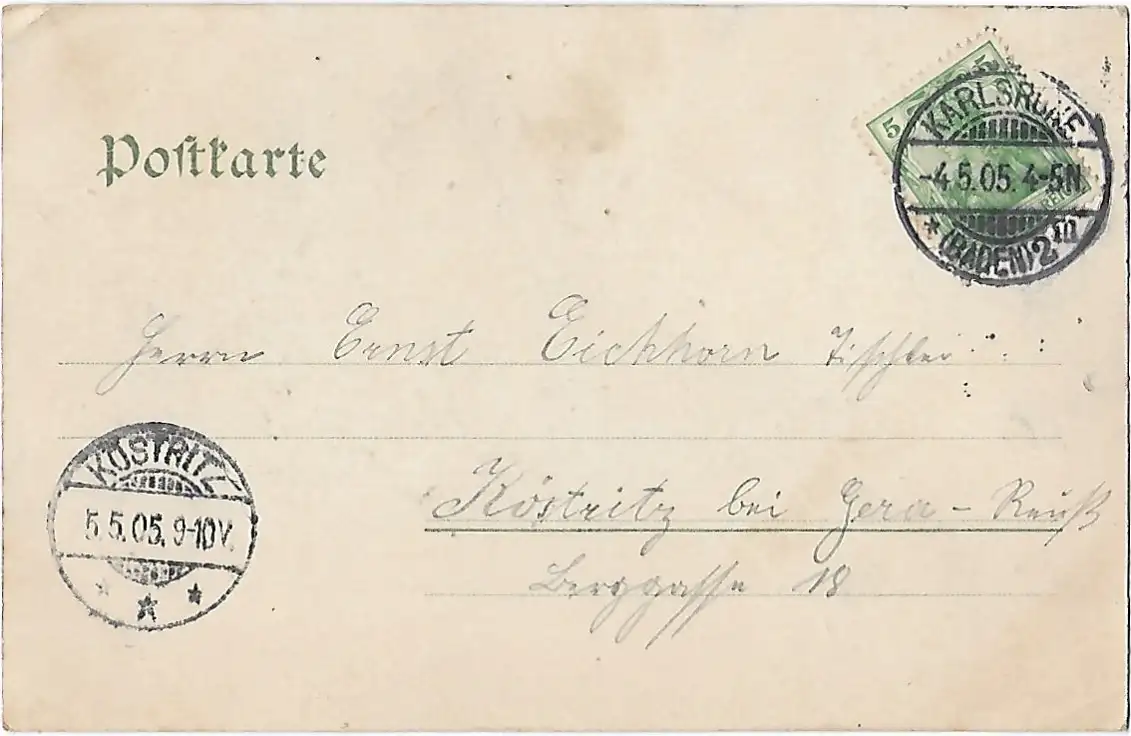 Postkarte
5 5
KARLSRUHE
-4.5.05. 4-5N
* (BADEN) 2
Herrn Ernst Eichhorn Tischler
KÖSTRITZ
5.5.05. 9-10V.
* * *
Köstritz bei Gera - Reuß
Berggasse 18